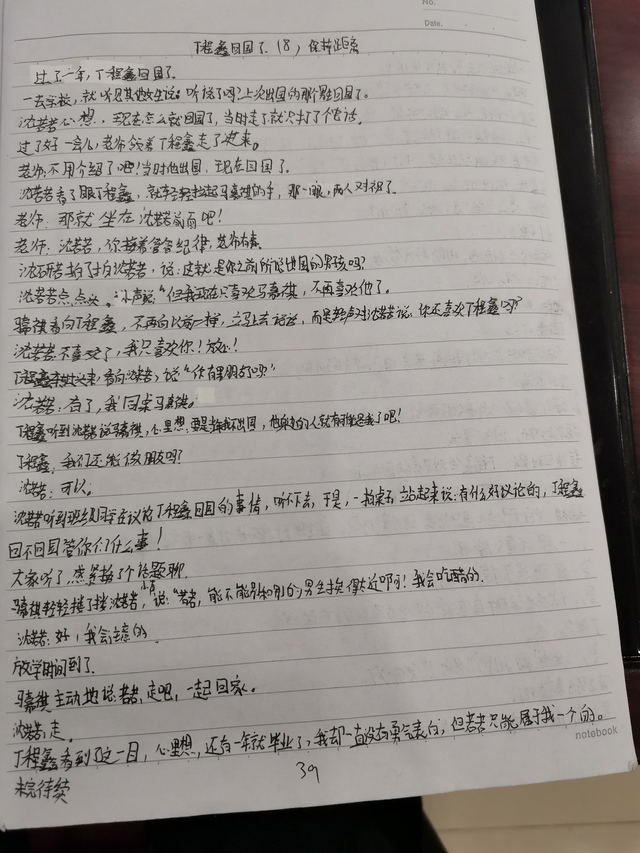 No.
Date.
丁程鑫回国了.(8),保持距离
过了一年,丁程鑫回国了.
一去学校,就听见其他女生说:听说了吗?上次出国的那个男生回国了。
沈若若心想,现在怎么就回国了,当时走了就只打了个电话.
过了好一会儿,老师领着丁程鑫走了进来。
老师:不用介绍了吧!当时他出国,现在回国了。
沈若若看了眼丁程鑫,就轻轻拉起马嘉祺的手,那一眼,两人对视了.
老师:那就坐在沈若若前面吧!
老师:沈若若,你接着管管纪律,老师有事.
拍了拍沈若若,说:这就是你之前所说出国的男孩吗?
沈若若点点头。小声说"但我现在只喜欢马嘉祺,不再喜欢他了。
马嘉祺看向丁程鑫,不再向以前一样,立马去说话,而是轻声对沈若若说:你还喜欢丁程鑫吗?"
沈若若:不喜欢了,我只喜欢你!放心!
丁程鑫转过头来,看向沈若若,说"你有男朋友吗?"
沈若若:有了,我同桌马嘉祺。
丁程鑫听到沈若若说马嘉祺,心里想:要是当时我不出国,他身边的人就有可能是我了吧!
丁程鑫:我们还能做朋友吗?
沈若若:可以。
沈若若听到班级同学在议论丁程鑫回国的事情,听不下去,于是,一拍桌子站起来说:有什么好议论的,丁程鑫
回不回国管你们什么事!
大家听了,赶紧换了个话题聊.
马嘉祺轻轻搂了搂沈若若,小声说:"若若,能不能别和别的男生挨得太近啊!我会吃醋的.
沈若若:好,我会注意的.
放学时间到了.
马嘉祺主动地说:若若,走吧,一起回家。
沈若若:走.
丁程鑫看到了这一目,心里想,还有一年就毕业了,我却一直没有勇气表白,但若若只能属于我一个的。
未完待续
notebook
39